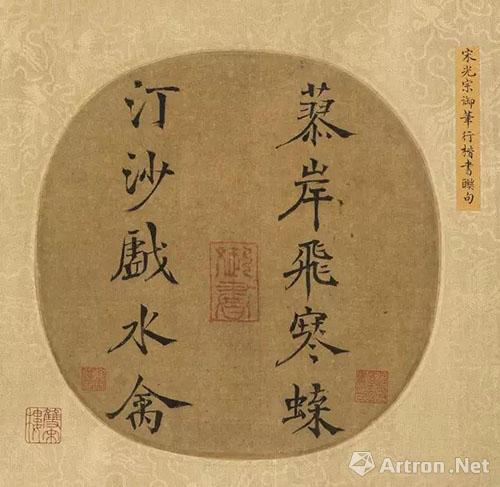 宋光宗御筆行楷書聯句
蓼岸飛寒蝶
御書
汀沙戲水禽
雙宋樓
Artron.Net